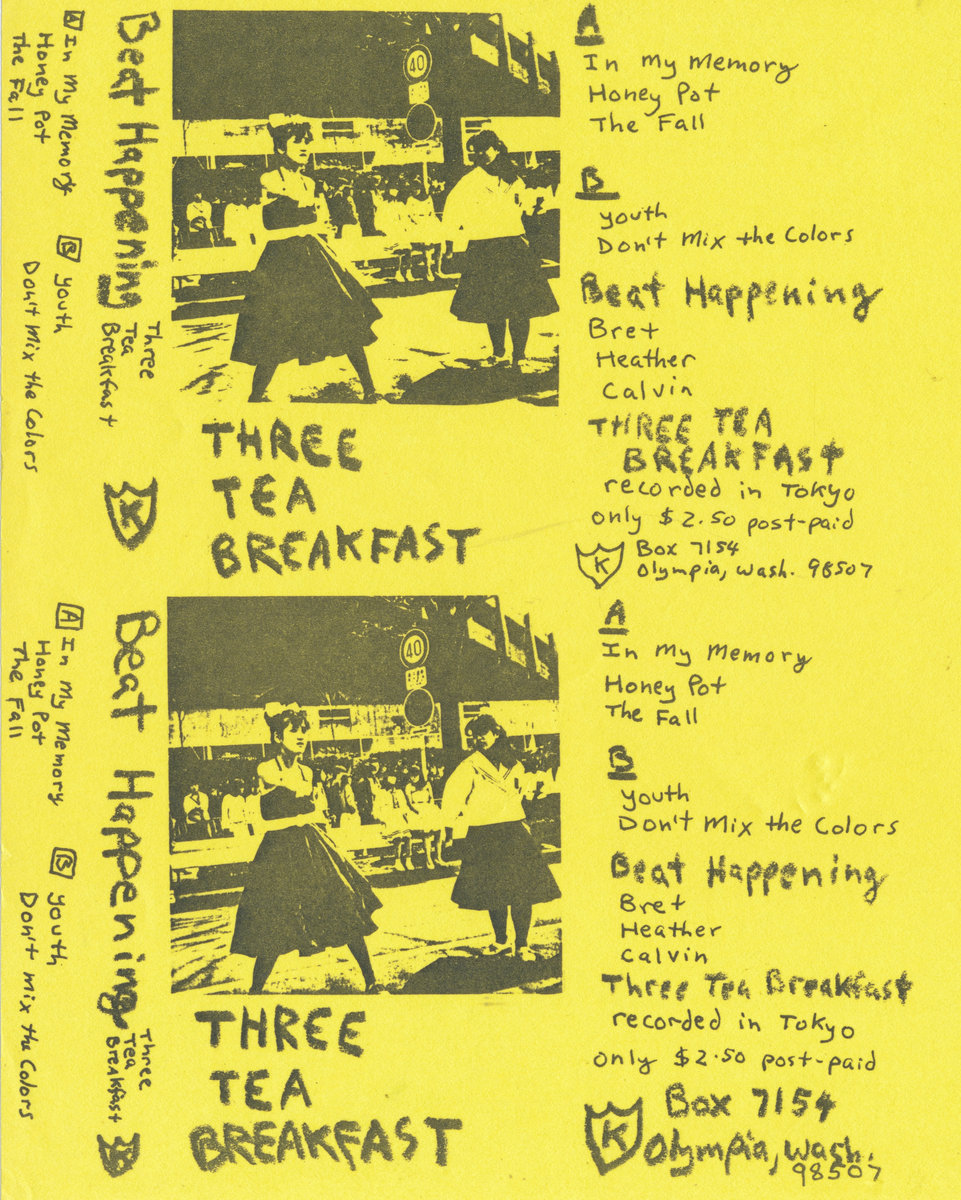 A In My Memory
Honey Pot
The Fall
B Youth
Don't Mix the Colors
Beat Happening
Three
Tea
Breakfast
K
40
THREE
TEA
BREAKFAST
A
In My Memory
Honey Pot
The Fall
B
Youth
Don't Mix the Colors
Beat Happening
Bret
Heather
Calvin
THREE TEA
BREAKFAST
recorded in Tokyo
only $2.50 post-paid
K
Box 7154
Olympia, Wash. 98507
A In My Memory
Honey Pot
The Fall
B Youth
Don't Mix the Colors
Beat Happening
Three
Tea
Breakfast
K
40
THREE
TEA
BREAKFAST
A
In My Memory
Honey Pot
The Fall
B
Youth
Don't Mix the Colors
Beat Happening
Bret
Heather
Calvin
Three Tea Breakfast
recorded in Tokyo
only $2.50 post-paid
K
Box 7154
Olympia, Wash.
98507